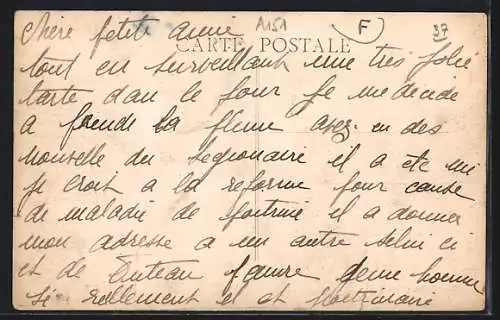 Chère petite amie
A151
F
37
CARTE POSTALE
tout en surveillant une très jolie
tarte dan le four je me décide
a prende la plume avez-en des
nouvelle du legionaire il a été mi
je croit a la reforme pour cause
de maladie de poitrine il a donner
mon adresse a un autre selui ci
et de pauvre jeune homme
si rellement il et poitrinaire